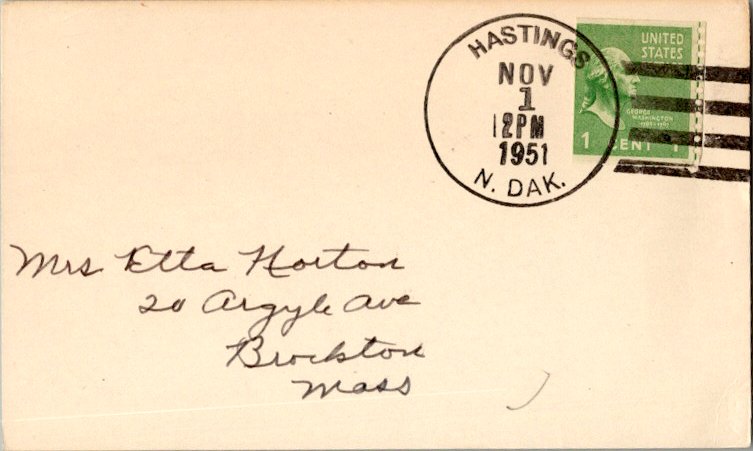 HASTINGS
NOV
1
12PM
1951
N. DAK.
UNITED
STATES
GEORGE
WASHINGTON
1 CENT 1
Mrs Etta Horton
20 Argyle Ave
Brockton
Mass